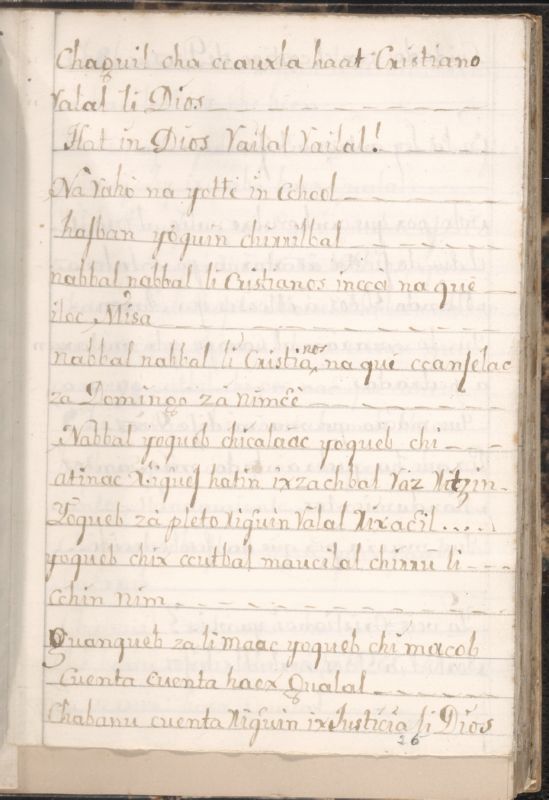 Chaguil cha ccauxla haat Cristiano
Valal li Dios
Hat in Dios Vailal Vailal!
Na vahò na yotte in Cchool
hasban yoquin chirrilbal
nabbal nabbal li Cristianos incca na que
iloc Misa
nabbal nabbal li Cristianos na que ccanselac
za Domingo za nimcè
Nabbal yoqueb chicalaac yoqueb chi
atinac xiques hatin ixzachbal vaz Nitzin
Yoqueb za pleto xiquin Valal xixacil....
yoqueb chix ccutbal maucilal chirrù li
cchin nim
Quanqueb za li maac yoqueb chi macob
Cuenta Cuenta haex Qualal
Chabanu cuenta xiquin ix Justicia li Dios
26